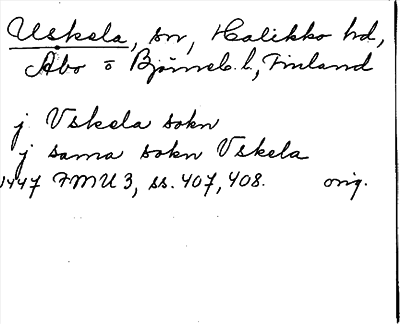 Uskela, sn, Halikko hd,
Åbo o Björneb. l., Finland
j Vskela sokn
j sama sokn Vskela
1447 FMU 3, ss. 407, 408. orig.